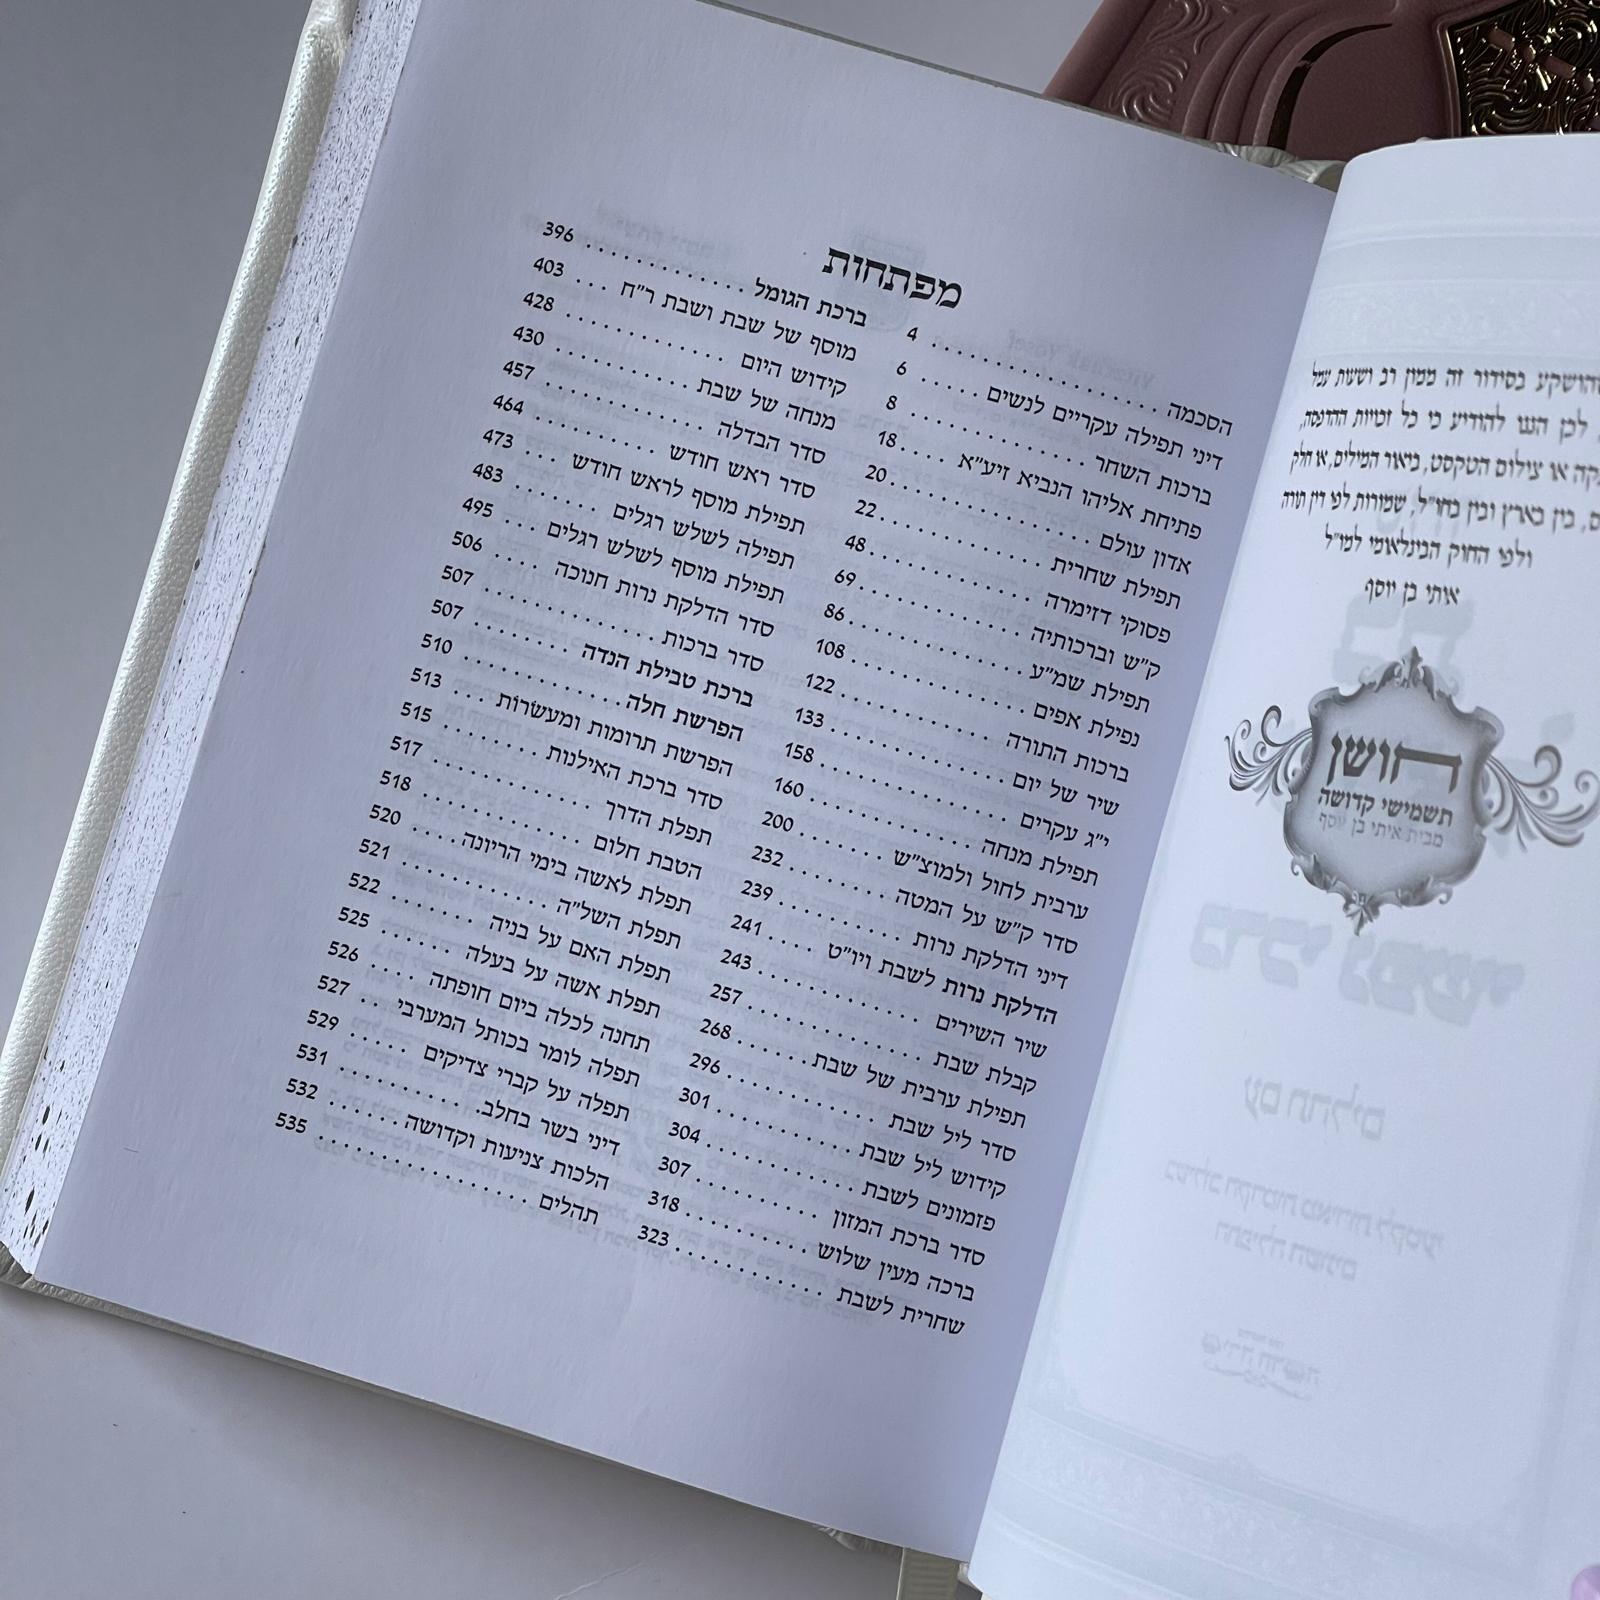 שהושקע בסידור זה ממון רב ושעות עמל
לכן הננו להודיע כי כל זכויות ההדפסה,
או צילום הטקסט, ביאור המילים, או חלק
בין בארץ ובין בחו"ל, שמורות לפי דין תורה
ולפי החוק הבינלאומי למו"ל
איתי בן יוסף
חושן
תשמישי קדושה
מבית איתי בן יוסף
מפתחות
הסכמה 4
דיני תפילה עקריים לנשים 6
ברכות השחר 8
פתיחת אליהו הנביא זיע"א 18
אדון עולם 20
תפילת שחרית 22
פסוקי דזימרה 48
ק"ש וברכותיה 69
תפילת שמ"ע 86
נפילת אפים 108
ברכות התורה 122
שיר של יום 133
י"ג עקרים 158
תפילת מנחה 160
ערבית לחול ולמוצ"ש 200
סדר ק"ש על המטה 232
דיני הדלקת נרות 239
הדלקת נרות לשבת ויו"ט 241
שיר השירים 243
קבלת שבת 257
תפילת ערבית של שבת 268
סדר ליל שבת 296
קידוש ליל שבת 301
פזמונים לשבת 304
סדר ברכת המזון 307
ברכה מעין שלוש 318
שחרית לשבת 323
ברכת הגומל 396
מוסף של שבת ושבת ר"ח 403
קידוש היום 428
מנחה של שבת 430
סדר הבדלה 457
סדר ראש חודש 464
תפילת מוסף לראש חודש 473
תפילה לשלש רגלים 483
תפילת מוסף לשלש רגלים 495
סדר הדלקת נרות חנוכה 506
סדר ברכות 507
ברכת טבילת הנדה 507
הפרשת חלה 510
הפרשת תרומות ומעשרות 513
סדר ברכת האילנות 515
תפלת הדרך 517
הטבת חלום 518
תפלת לאשה בימי הריונה 520
תפלת השל"ה 521
תפלת האם על בניה 522
תפלת אשה על בעלה 525
תחנה לכלה ביום חופתה 526
תפלה לומר בכותל המערבי 527
תפלה על קברי צדיקים 529
דיני בשר בחלב 531
הלכות צניעות וקדושה 532
תהלים 535